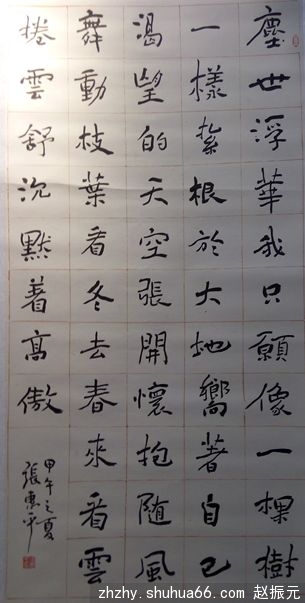 塵世浮華我只願像一棵樹
一樣紮根於大地嚮著自己
渴望的天空張開懷抱随風
舞動枝葉看冬去春來看雲
捲雲舒沉默着高傲
甲午之夏
張惠平
zhzhy.shuhua66.com 赵振元